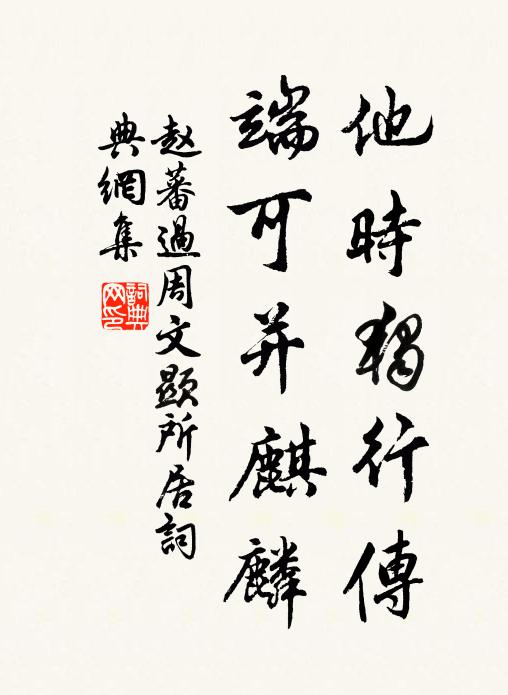 他時獨行傳
端可并麒麟
赵蕃過周文顯所居詞
典網集
詞典网印